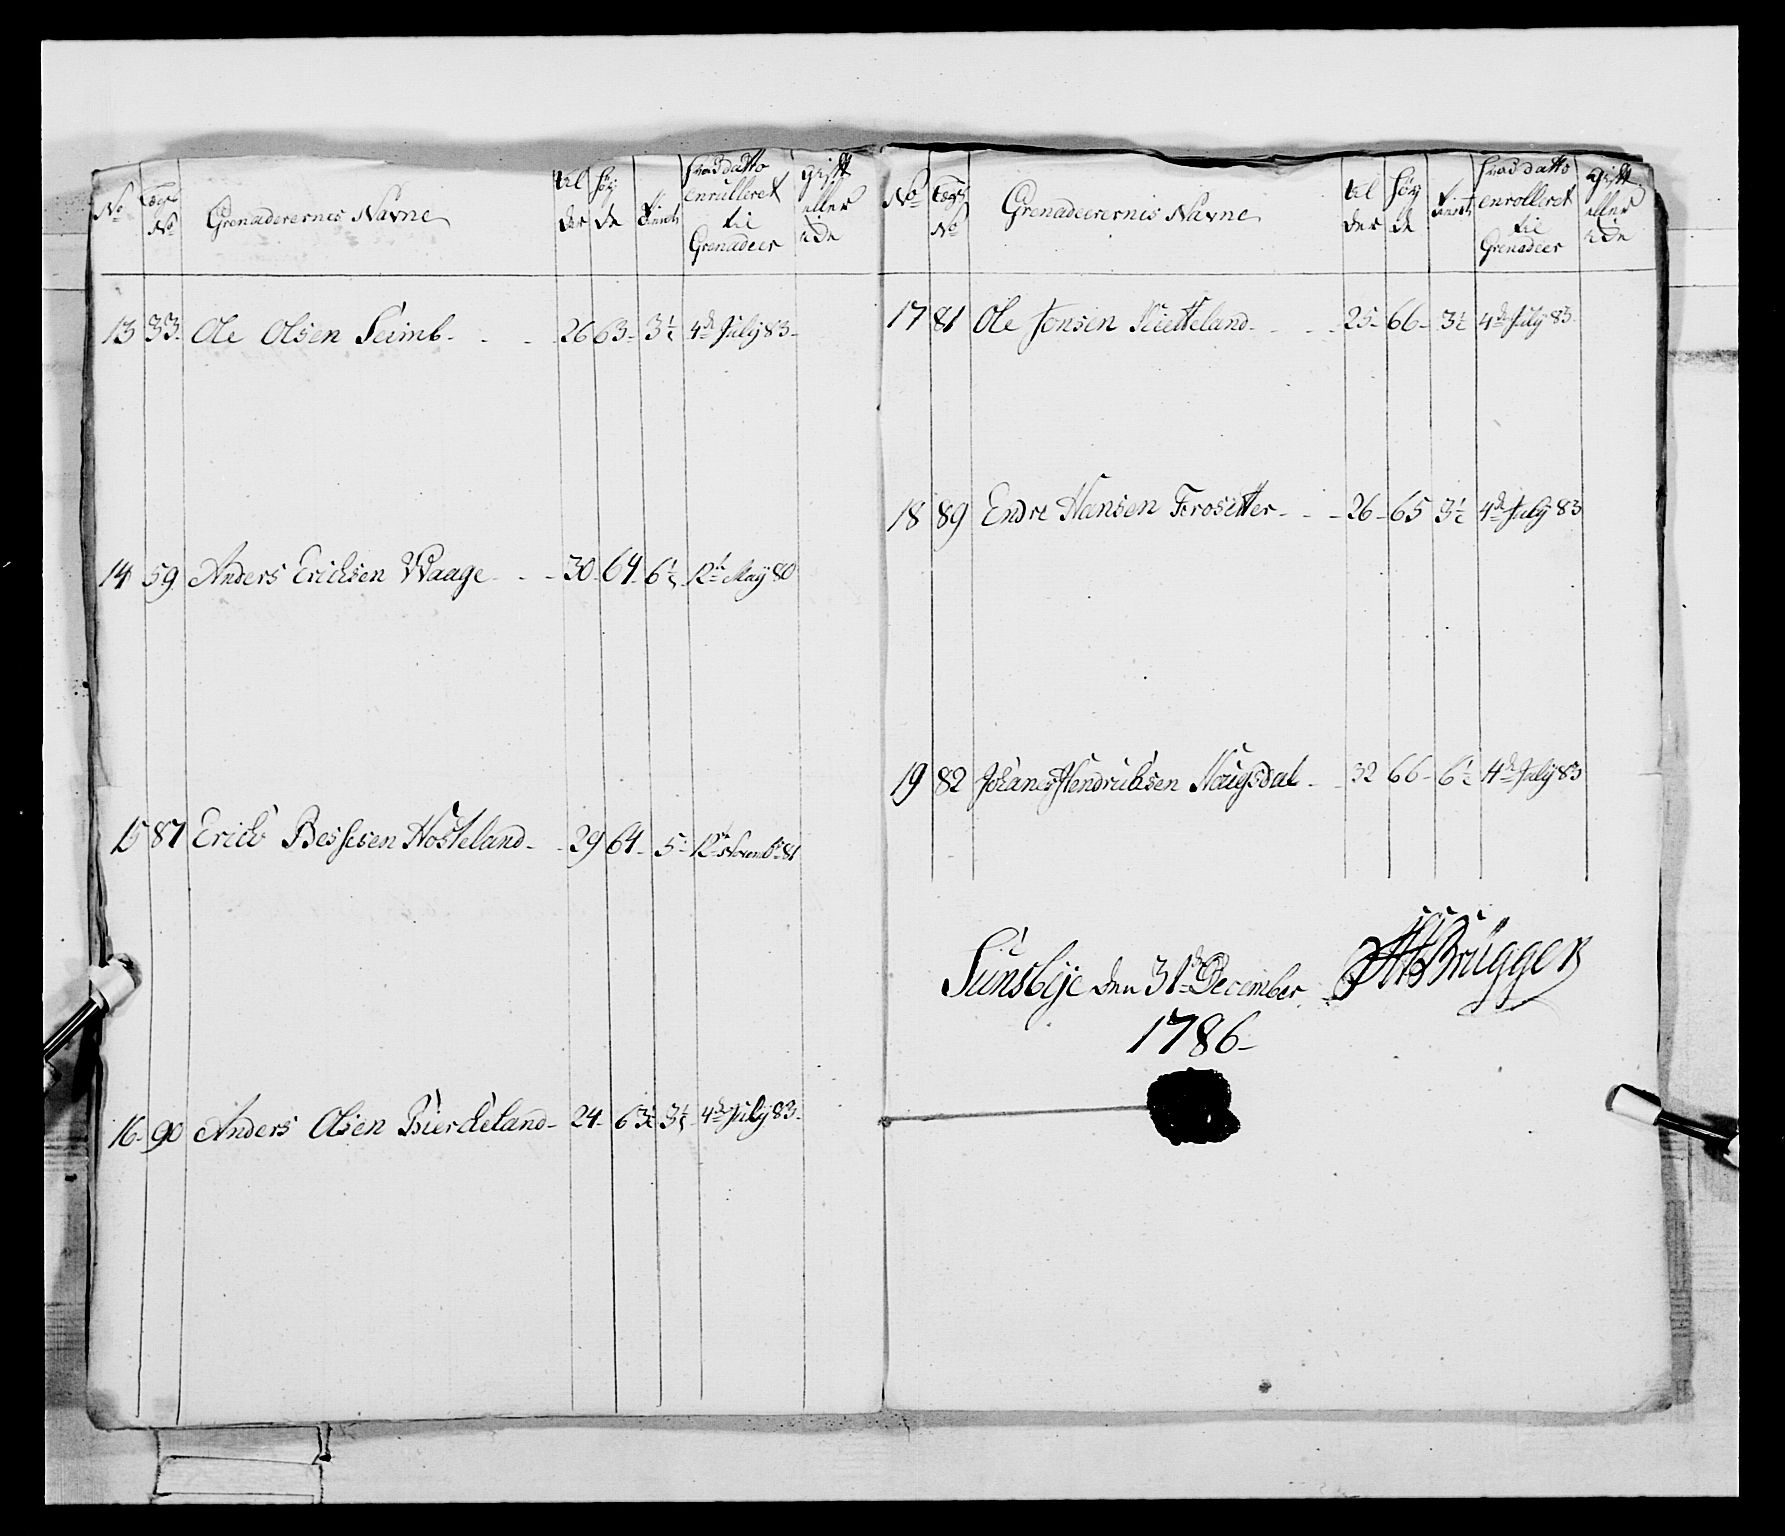 No Lægs No Grenaderernes Navne Al der Høy de Tienst Hvad datto enrulleret til Grenadeer Gift eller ide
13 33. Ole Olsen Seimb. 26 63. 3½ 4de July 83.
14 59 Anders Ericksen Waage 30 64 6½ 12te May 80
15 87 Erick Bessesen Hosteland 29 64 5 12te Novembr 81
16 90 Anders Olsen Bierckeland 24 63½ 3½ 4de July 83.
No Lægs No Grenadeerernis Navne Al der Høy de Tienst Hvad datto enrolleret til Grenadeer Gift eller ide
17 81 Ole Jonsen Kietteland 25 66 3½ 4de July 83
18 89 Endre Hansen Frosetter 26 65 3½ 4de July 83
19 82 Johanes Hendricksen Haugsdal 32 66 6½ 4de July 83
Sunsbye den 31de December HBrüggen
1786